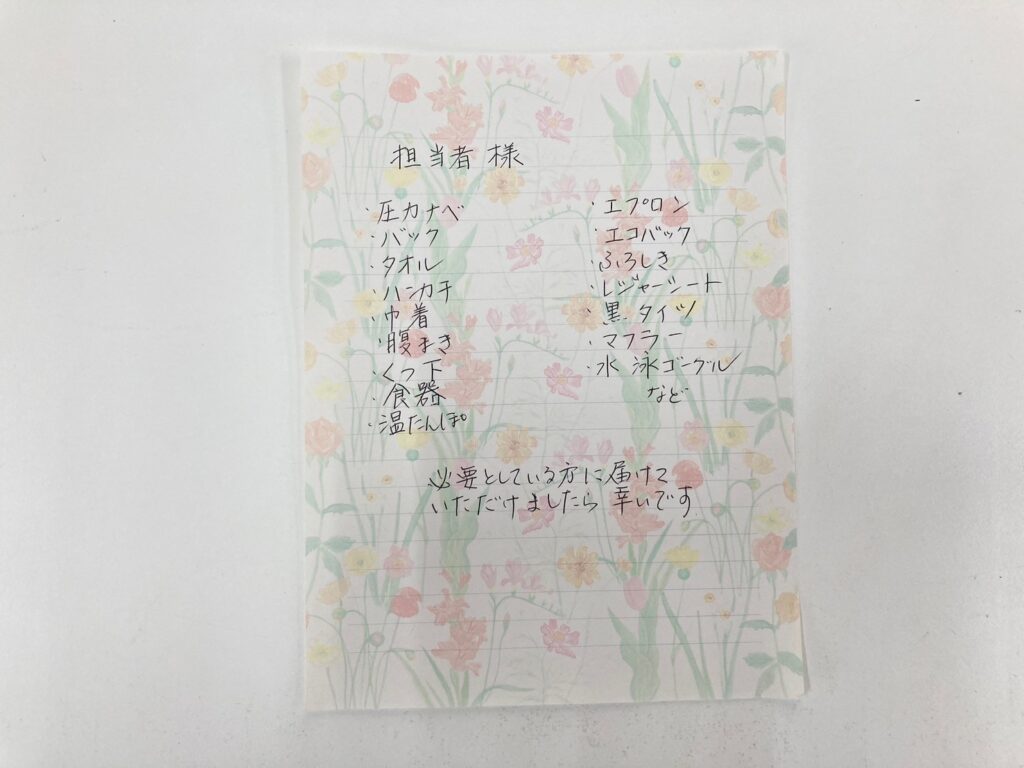 担当者 様
・圧力ナベ
・バック
・タオル
・ハンカチ
・巾着
・腹まき
・くつ下
・食器
・温たんぽ
・エプロン
・エコバック
・ふろしき
・レジャーシート
・黒タイツ
・マフラー
・水泳ゴーグル
など
必要としている方に届けて
いただけましたら幸いです